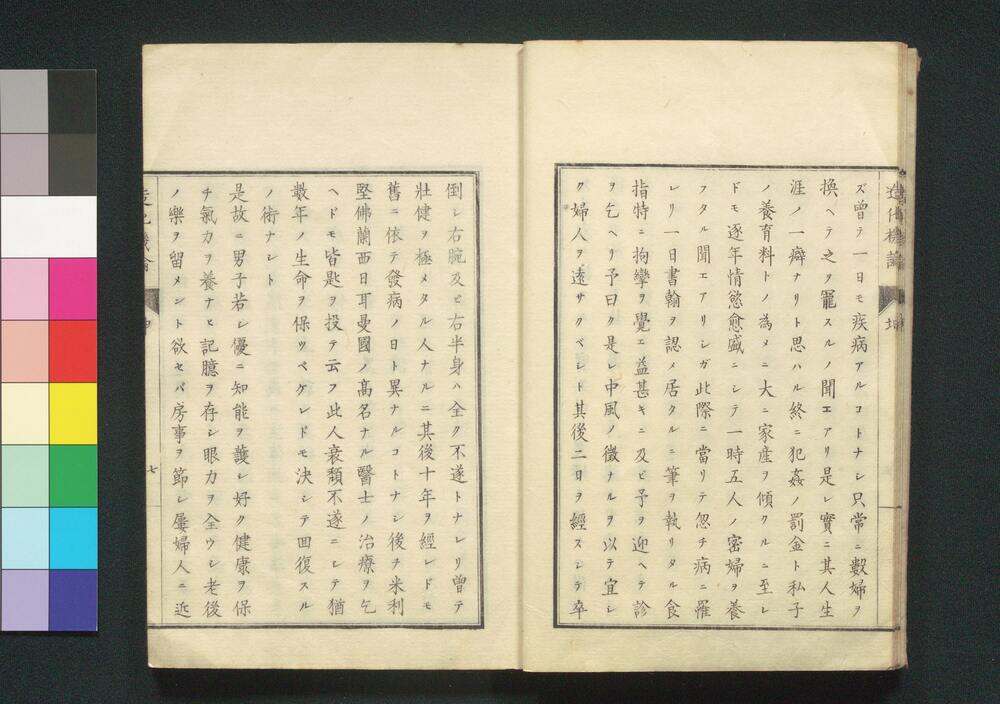 ズ曾テ一日モ疾病アルコトナシ只常ニ數婦ヲ
換ヘテ之ヲ寵スルノ聞エアリ是レ實ニ其人生
涯ノ一癖ナリト思ハル終ニ犯姦ノ罰金ト私子
ノ養育料トノ為メニ大ニ家産ヲ傾クルニ至レ
ドモ逐年情慾愈盛ニシテ一時五人ノ密婦ヲ養
フタル聞エアリシガ此際ニ當リテ忽チ病ニ罹
レリ一日書翰ヲ認メ居タルニ筆ヲ執リタル食
指特ニ拘攣ヲ覺エ益甚キニ及ビ予ヲ迎ヘテ診
ヲ乞ヘリ予曰ク是レ中風ノ徴ナルヲ以テ宜シ
ク婦人ヲ遠サクベシト其後二日ヲ經スシテ卒
倒レ右腕及ビ右半身ハ全ク不遂トナレリ曾テ
壯健ヲ極メタル人ナルニ其後十年ヲ經レドモ
舊ニ依テ發病ノ日ト異ナルコトナシ後チ米利
堅佛蘭西日耳曼國ノ高名ナル醫士ノ治療ヲ乞
ヘドモ皆匙ヲ投テ云フ此人衰頽不遂ニシテ猶
數年ノ生命ヲ保ツベケレドモ決シテ回復スル
ノ術ナシト
是故ニ男子若シ優ニ知能ヲ護シ好ク健康ヲ保
チ氣力ヲ養ナヒ記臆ヲ存シ眼力ヲ全ウシ老後
ノ樂ヲ留メント欲セバ房事ヲ節シ屢婦人ニ近
七